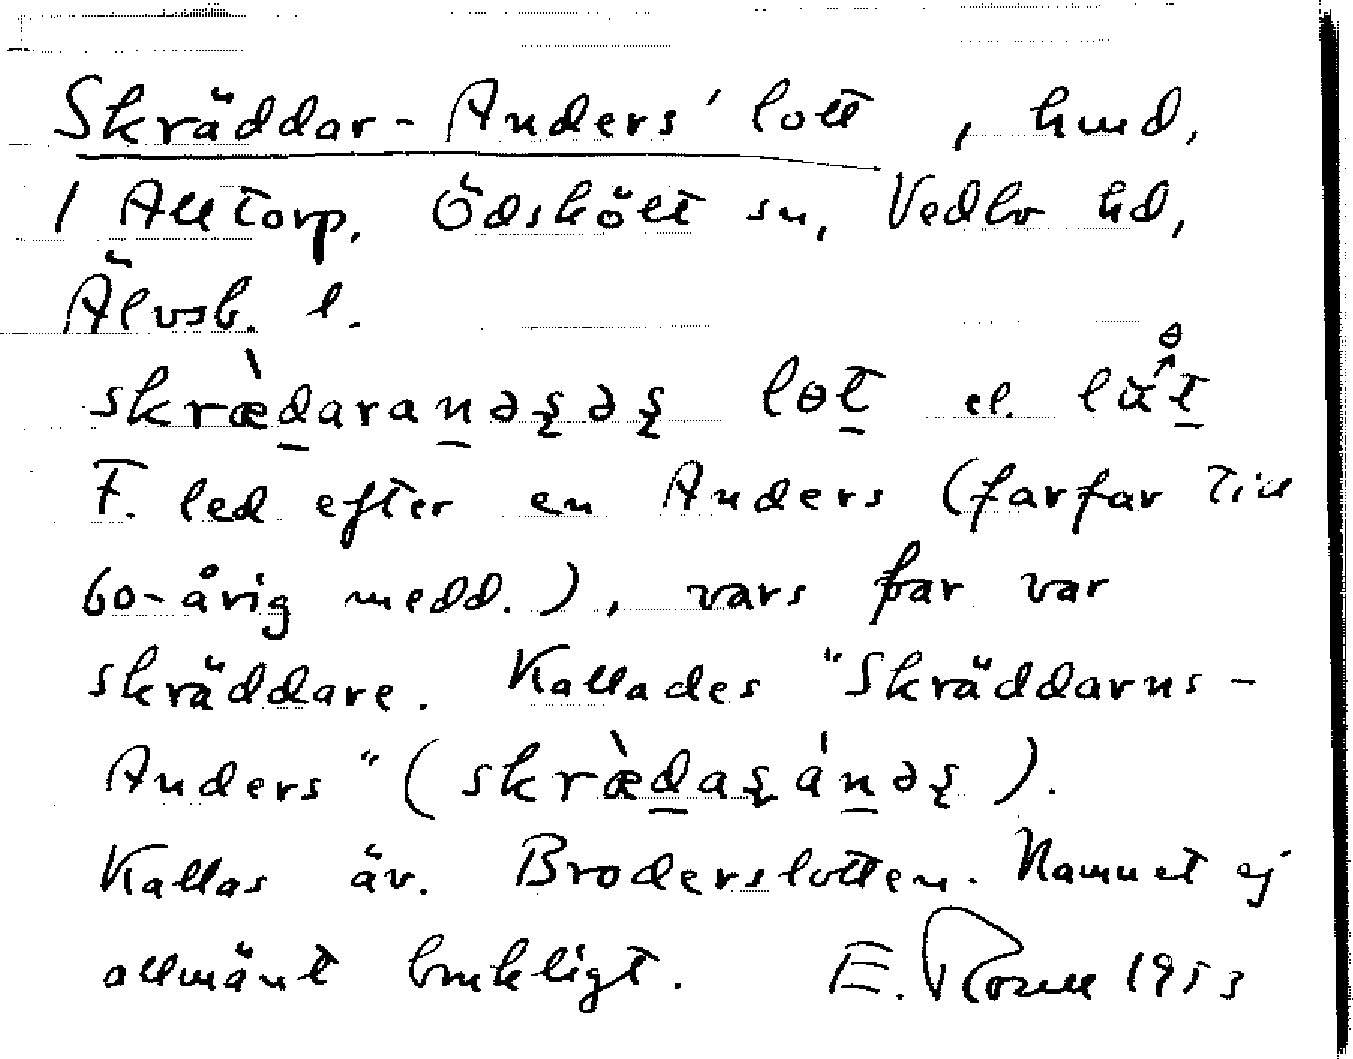 Skräddar-Anders' lott, hmd,
1 Alltorp, Ödskölt sn, Vedbo hd,
Älvsb. l.
skræ̀d̲aran̲əʂəʂ lɵt̲ el. låt̲
F. led efter en Anders (farfar till
60-årig medd.), vars far var
skräddare. Kallades "Skräddarns-
Anders" (skræ̀d̲aʂán̲əʂ).
Kallas äv. Broderslotten. Namnet ej
allmänt brukligt. E. Rosell 1953